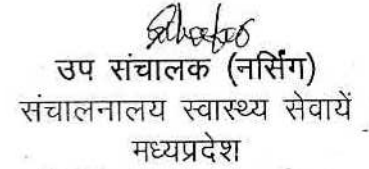 उप संचालक (नर्सिंग)
संचालनालय स्वास्थ्य सेवायें
मध्यप्रदेश